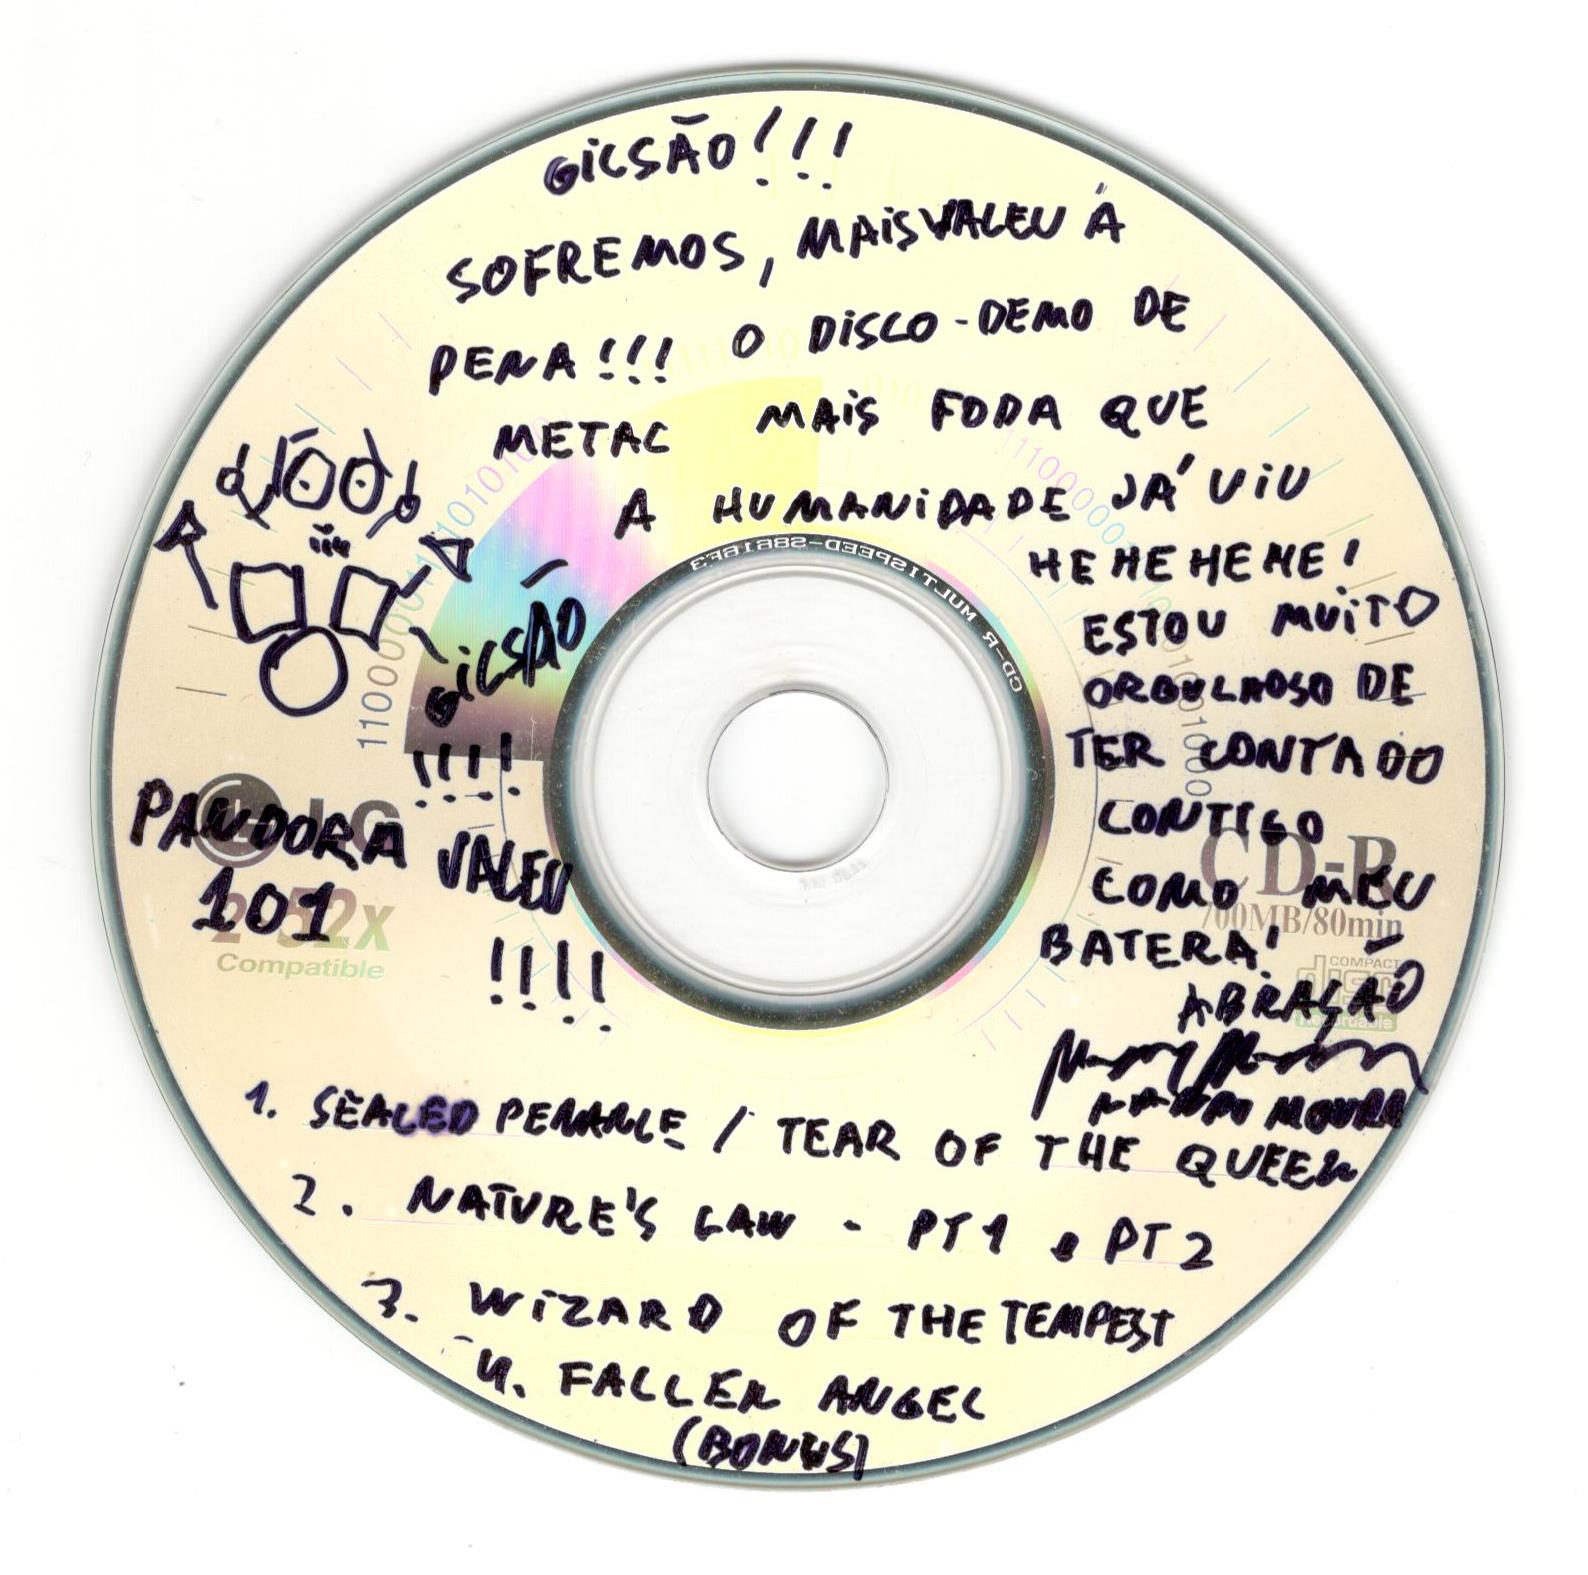 GILSÃO!!!
SOFREMOS, MAIS VALEU À
PENA!!! O DISCO-DEMO DE
METAL MAIS FODA QUE
A HUMANIDADE JÁ VIU
HEHEHEHE!
ESTOU MUITO
ORGULHOSO DE
TER CONTADO
CONTIGO
COMO MEU
BATERA!
ABRAÇÃO
MOURA
GILSÃO
!!!!
VALEU
!!!!
PANDORA
101
1. SEALED PENANCE / TEAR OF THE QUEEN
2. NATURE'S LAW - PT1 e PT2
3. WIZARD OF THE TEMPEST
4. FALLEN ANGEL
(BONUS)
LG
2-52x
Compatible
CD-R
700MB/80min
COMPACT
disc
Recordable
CD-R MULTISPEED-S8616F3